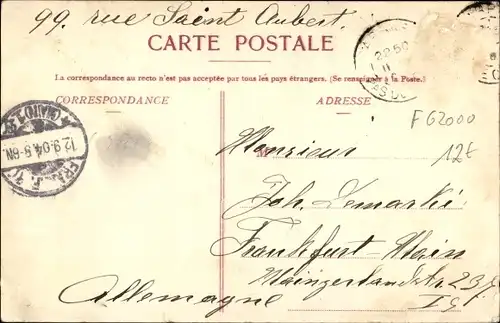 99. rue Saint Aubert.
CARTE POSTALE
La correspondance au recto n'est pas acceptée par tous les pays étrangers. (Se renseigner à la Poste.)
CORRESPONDANCE
ADRESSE
FG2000
12€
(MAIN)
12.9.04.5-6N.
Monsieur
Joh. Lemarké
Frankfurt-Main
Maingerlandstr. 23
Allemagne